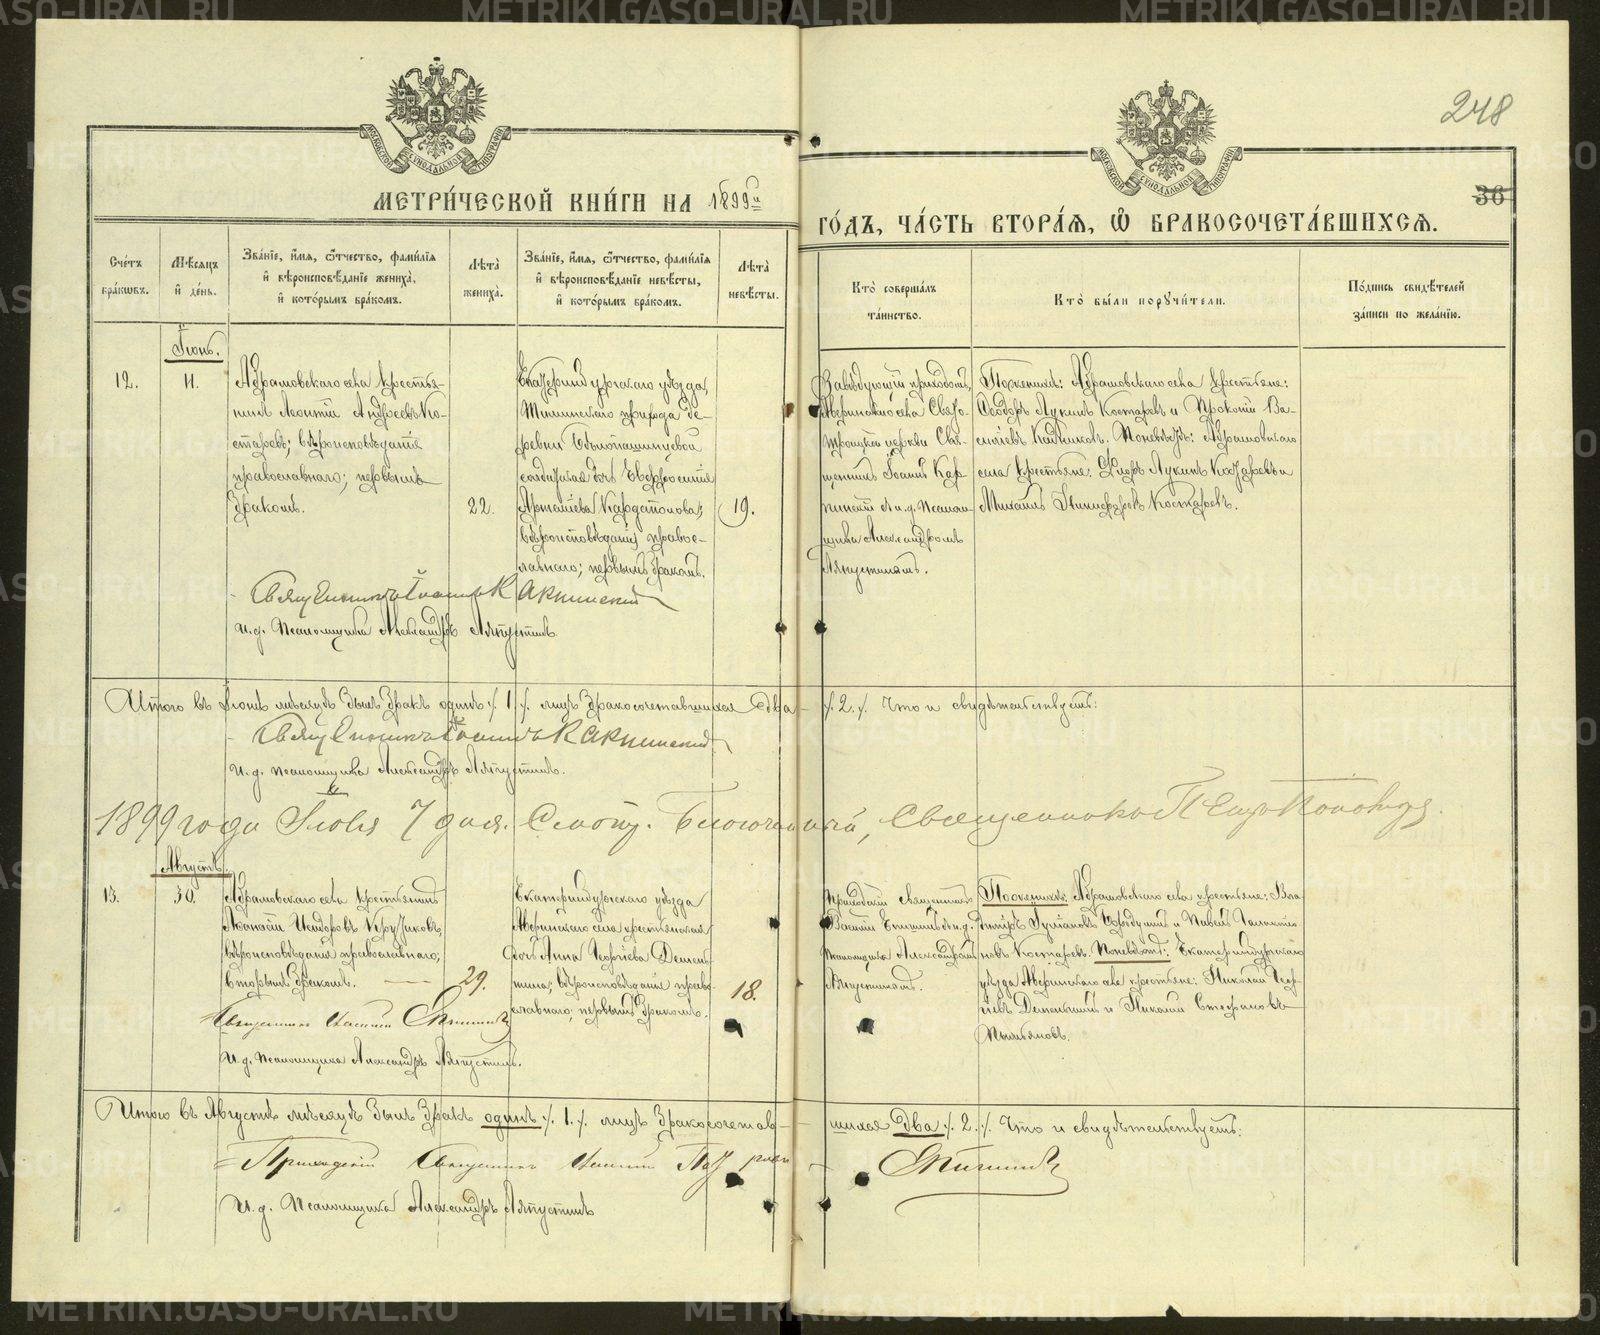 METRIKI.GASO-URAL.RU
248
36
МЕТРИ́ЧЕСКОЙ КНИ́ГИ НА 1899й
ГО́ДЪ, ЧА́СТЬ ВТОРА́Я, Ѡ БРАКОСОЧЕТА́ВШИХСЯ.
Сче́тъ
бра́кѡвъ.
Мѣ́сяцъ
и҆ де́нь.
Зва́нїе, и҆́мя, ѻ҆́тчество, фами́лїя
и҆ вѣроисповѣ́данїе жениха̀,
и҆ кото́рымъ бра́комъ.
Лѣта̀
жениха̀.
Зва́нїе, и҆́мя, ѻ҆́тчество, фами́лїя
и҆ вѣроисповѣ́данїе невѣ́сты,
и҆ кото́рымъ бра́комъ.
Лѣта̀
невѣ́сты.
Кто̀ соверша́лъ
та́инство.
Кто̀ бы́ли поручи́тели.
По́дпись свидѣ́телей
за́писи по жела́нїю.
Іюнь.
12.
11.
Абрамовскаго села крестья-
нинъ Леонтій Андреевъ Ко-
старевъ; вѣроисповѣданія
православнаго; первымъ
бракомъ.
22.
Екатеринбургскаго уѣзда,
прихода де-
ревни
солдатская дочь Евфросинія
вѣроисповѣданія правос-
лавнаго; первымъ бракомъ.
19.
Завѣдующій приходомъ,
Аверинскаго села Свято-
Троицкой церкви Свя-
щенникъ Іоаннъ Кар-
пинскій съ и. д. Псалом-
щика Александромъ
По женихѣ: Абрамовскаго села крестьяне:
Ѳеодоръ Лукинъ Костаревъ и Прокопій Ва-
сильевъ Кадниковъ. По невѣстѣ: Абрамовскаго
села крестьяне: Лукинъ и
Михаилъ Никифоровъ Костаревъ.
Священникъ Іоаннъ Карпинскій
И. д. Псаломщика Александръ
Итого въ Іюнѣ мѣсяцѣ былъ бракъ одинъ /. 1. /. лицъ бракосочетавшихся два /. 2. /. Что и свидѣтельствуютъ:
Священникъ Іоаннъ Карпинскій
И. д. псаломщика Александръ
1899 года Іюля 7 дня. Смотр. Благочинный, Священникъ Петръ
Августъ.
13.
30.
Абрамовскаго села крестьянинъ
Аѳанасій Исидоровъ
вѣроисповѣданія православнаго;
вторымъ бракомъ.
29.
Екатеринбургскаго уѣзда
Аверинскаго села крестьянская
дочь Анна Георгіева Демень-
шина; вѣроисповѣданія право-
славнаго; первымъ бракомъ.
18.
Приходскій священникъ
Василій съ и. д.
Псаломщика Александромъ
По женихѣ: Абрамовскаго села крестьяне: Вла-
диміръ и Павелъ
Костаревъ. По невѣстѣ: Екатеринбургскаго
уѣзда Аверинскаго села крестьяне: Николай Геор-
гіевъ Деменьшинъ и Николай Стефановъ
Священникъ Василій
И. д. Псаломщика Александръ
Итого въ Августѣ мѣсяцѣ былъ бракъ одинъ /. 1. /. лицъ бракосочетав-
шихся два /. 2. /. Что и свидѣтельствуютъ:
Приходскій Священникъ Василій
И. д. Псаломщика Александръ